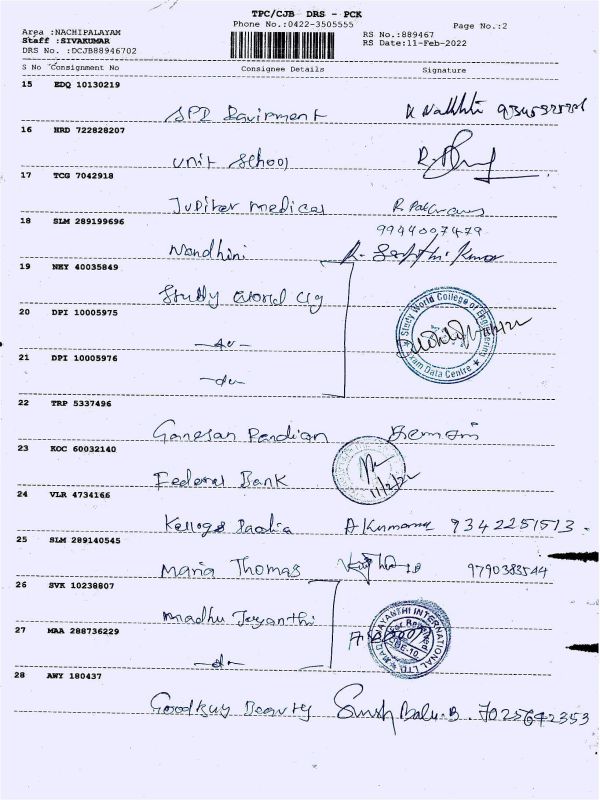 TPC/CJB DRS - PCK
Phone No.:0422-3505555
Page No.:2
Area :NACHIPALAYAM
Staff :SIVAKUMAR
DRS No. :DCJB88946702
RS No.:889467
RS Date:11-Feb-2022
S No Consignment No Consignee Details Signature
15 EDQ 10130219
16 HRD 722828207
Unit School
17 TCG 7042918
Jupiter medical
9994007479
18 SLM 289199696
Nandhini
19 NKY 40035849
Study World Clg
20 DPI 10005975
-do-
21 DPI 10005976
-do-
Study World College of Engineering
Exam Data Centre
22 TRP 5337496
Ganesan Pandian
23 KOC 60032140
Federal Bank
11/2/22
24 VLR 4734166
A Kumaran 9342251513
25 SLM 289140545
Maria Thomas 9790383544
26 SVK 10238807
Madhu Jayanthi
27 MAA 288736229
-do-
JAYANTHI INTERNATIONAL LTD
CBE-10
28 AWY 180437
Goodbuy Beauty Balu.B. 7025642353